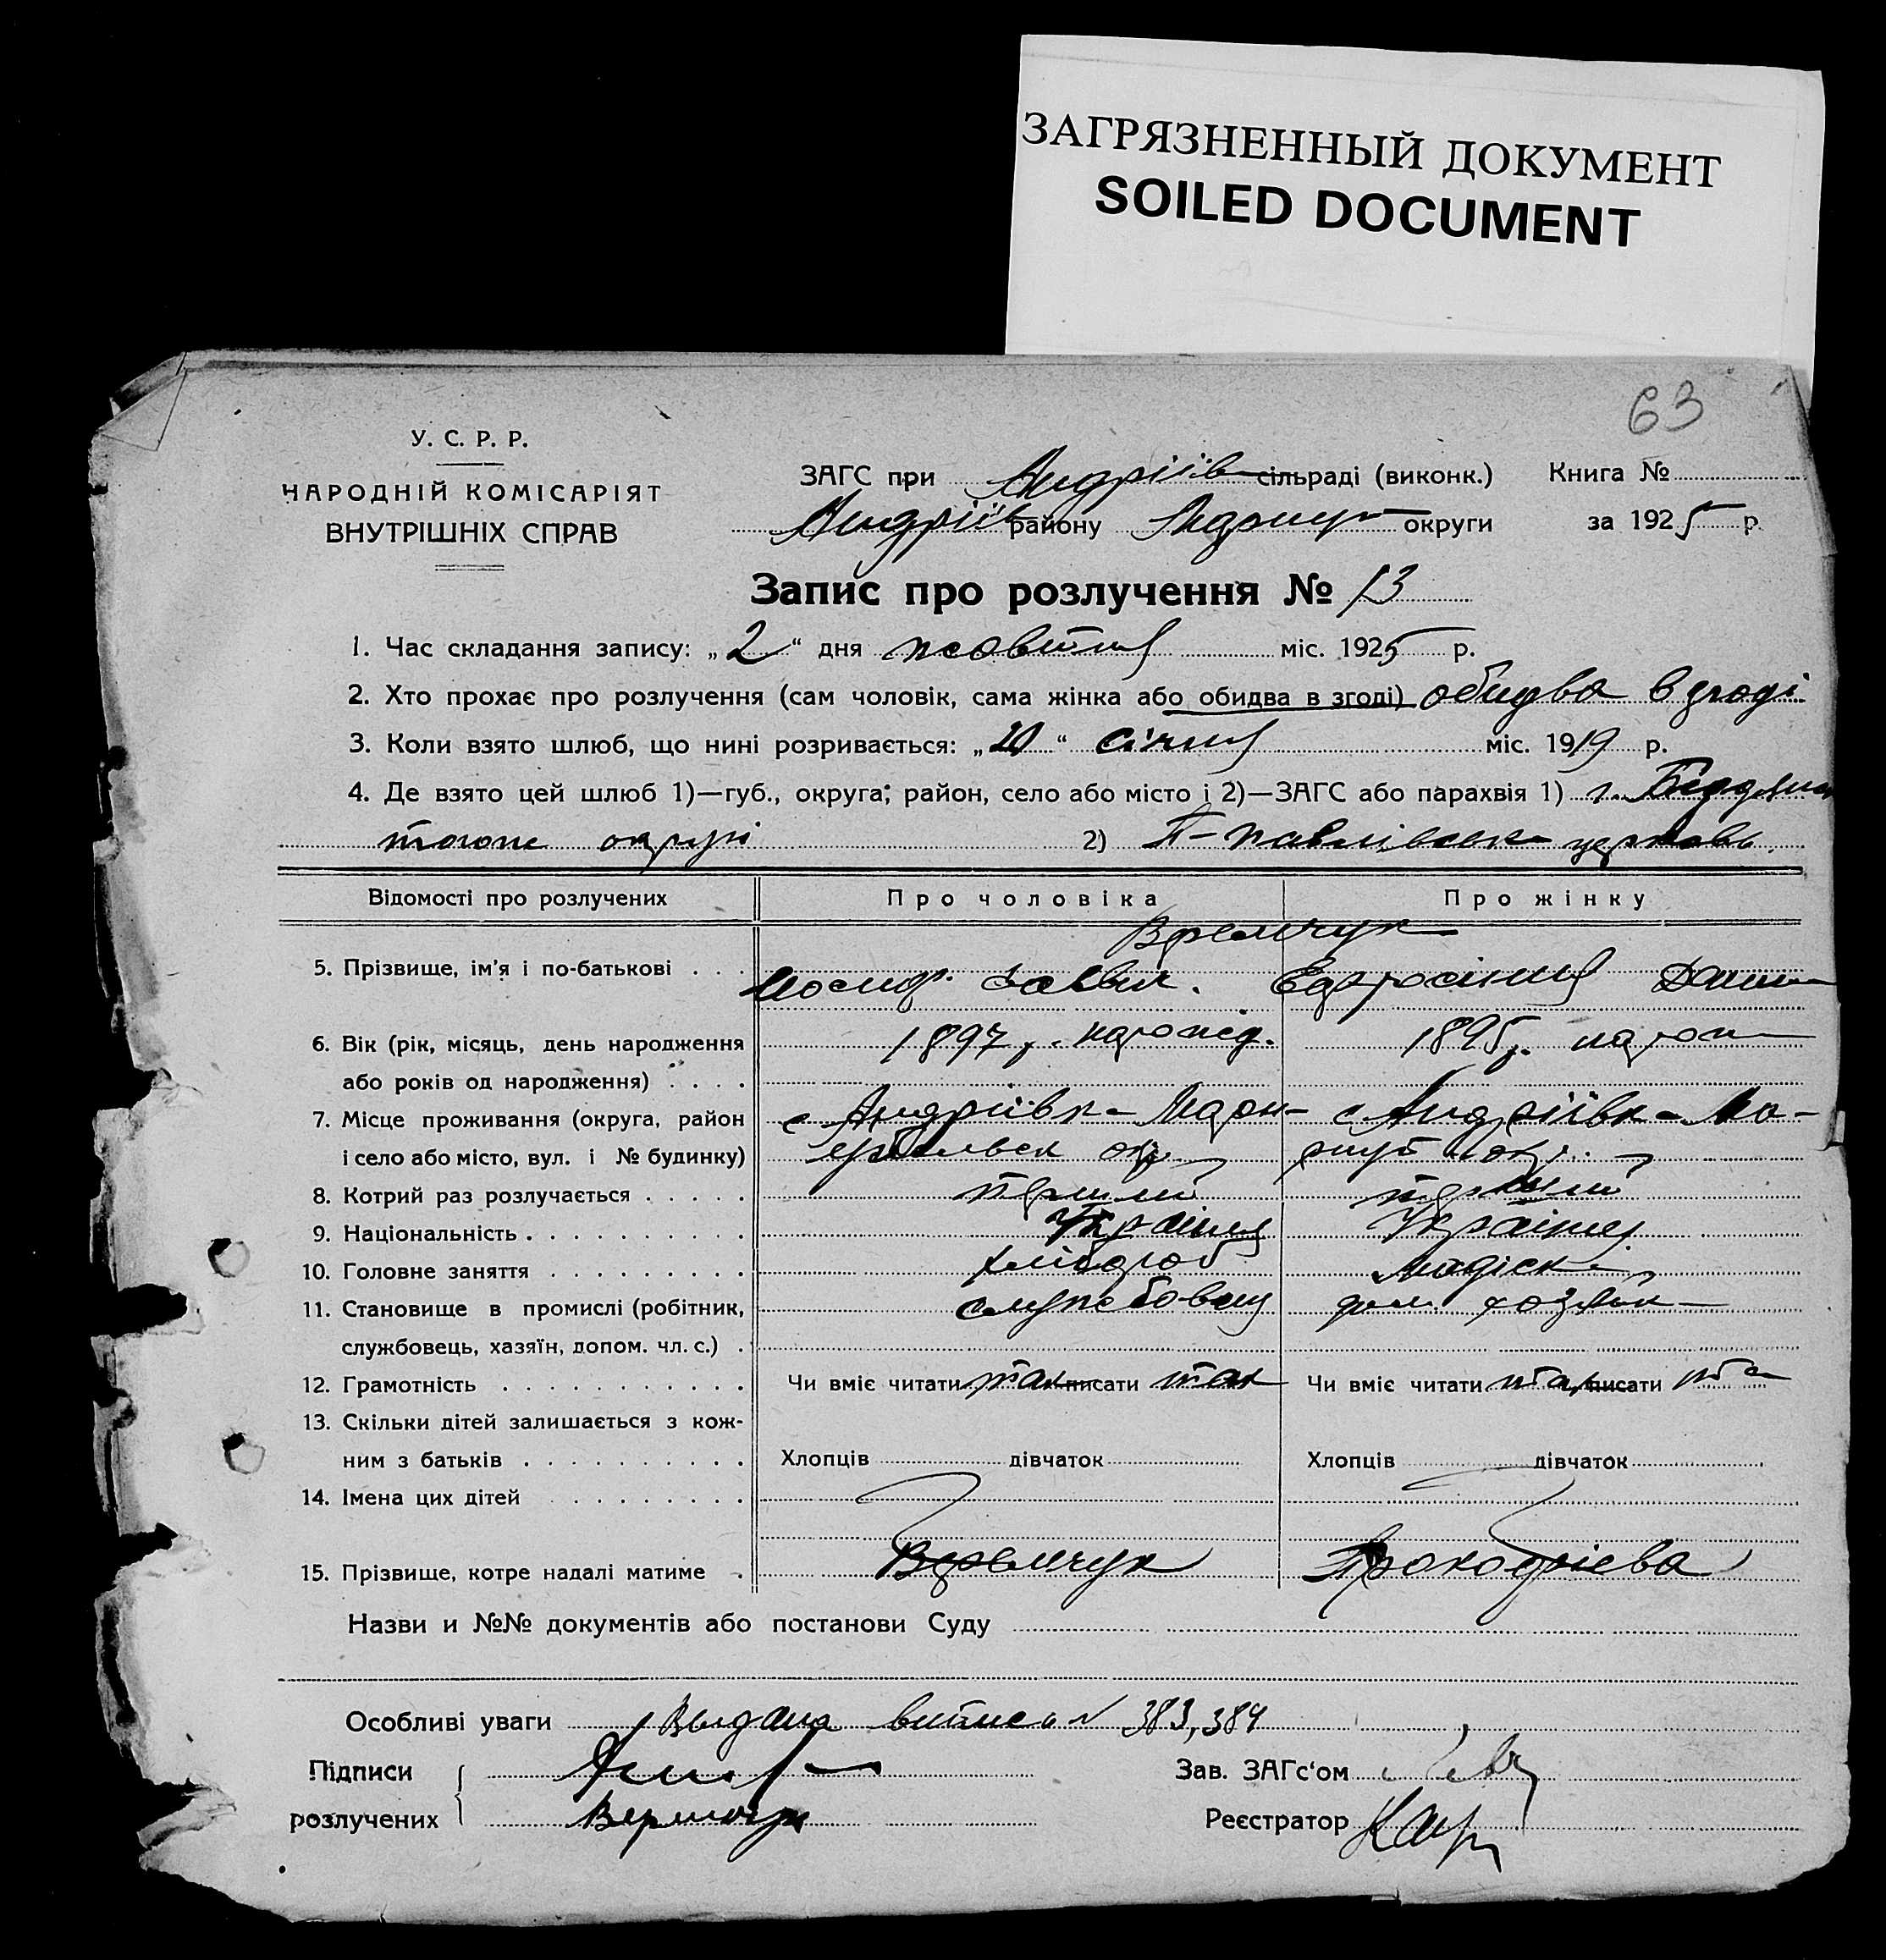 ЗАГРЯЗНЕННЫЙ ДОКУМЕНТ
SOILED DOCUMENT
63
У. С. Р. Р.
НАРОДНІЙ КОМІСАРІЯТ
ВНУТРІШНІХ СПРАВ
ЗАГС при Андріїв сільраді (виконк.) Книга №
Андріїв району округи за 1925 р.
Запис про розлучення № 13
1. Час складання запису: „2“ дня жовтня міс. 1925 р.
2. Хто прохає про розлучення (сам чоловік, сама жінка або обидва в згоді) обидва в згоді
3. Коли взято шлюб, що нині розривається: „20“ січня міс. 1919 р.
4. Де взято цей шлюб 1)—губ., округа; район, село або місто і 2)—ЗАГС або парахвія 1)
округи 2) П-павлівськ церковь.
Відомості про розлучених Про чоловіка Про жінку
5. Прізвище, ім’я і по-батькові . . .
6. Вік (рік, місяць, день народження 1897 р. 1895 р.
або років од народження) . . . .
7. Місце проживання (округа, район с Андріївк- Мари- с Андріївк- Ма-
і село або місто, вул. і № будинку)
8. Котрий раз розлучається . . . . . перший перший
9. Національність . . . . . . . . . . Україн Україн
10. Головне заняття . . . . . . . . . хлібороб
11. Становище в промислі (робітник, дом. хозяйк-
службовець, хазяїн, допом. чл. с.) .
12. Грамотність . . . . . . . . . . . Чи вміє читати так писати так Чи вміє читати так писати та
13. Скільки дітей залишається з кож-
ним з батьків . . . . . . . . . . Хлопців дівчаток Хлопців дівчаток
14. Імена цих дітей . . . . . . . . .
15. Прізвище, котре надалі матиме . Вермчук Прокофієва
Назви и №№ документів або постанови Суду
Особливі уваги Выдана витись № 383,384
Підписи Зав. ЗАГс‘ом
розлучених Реєстратор